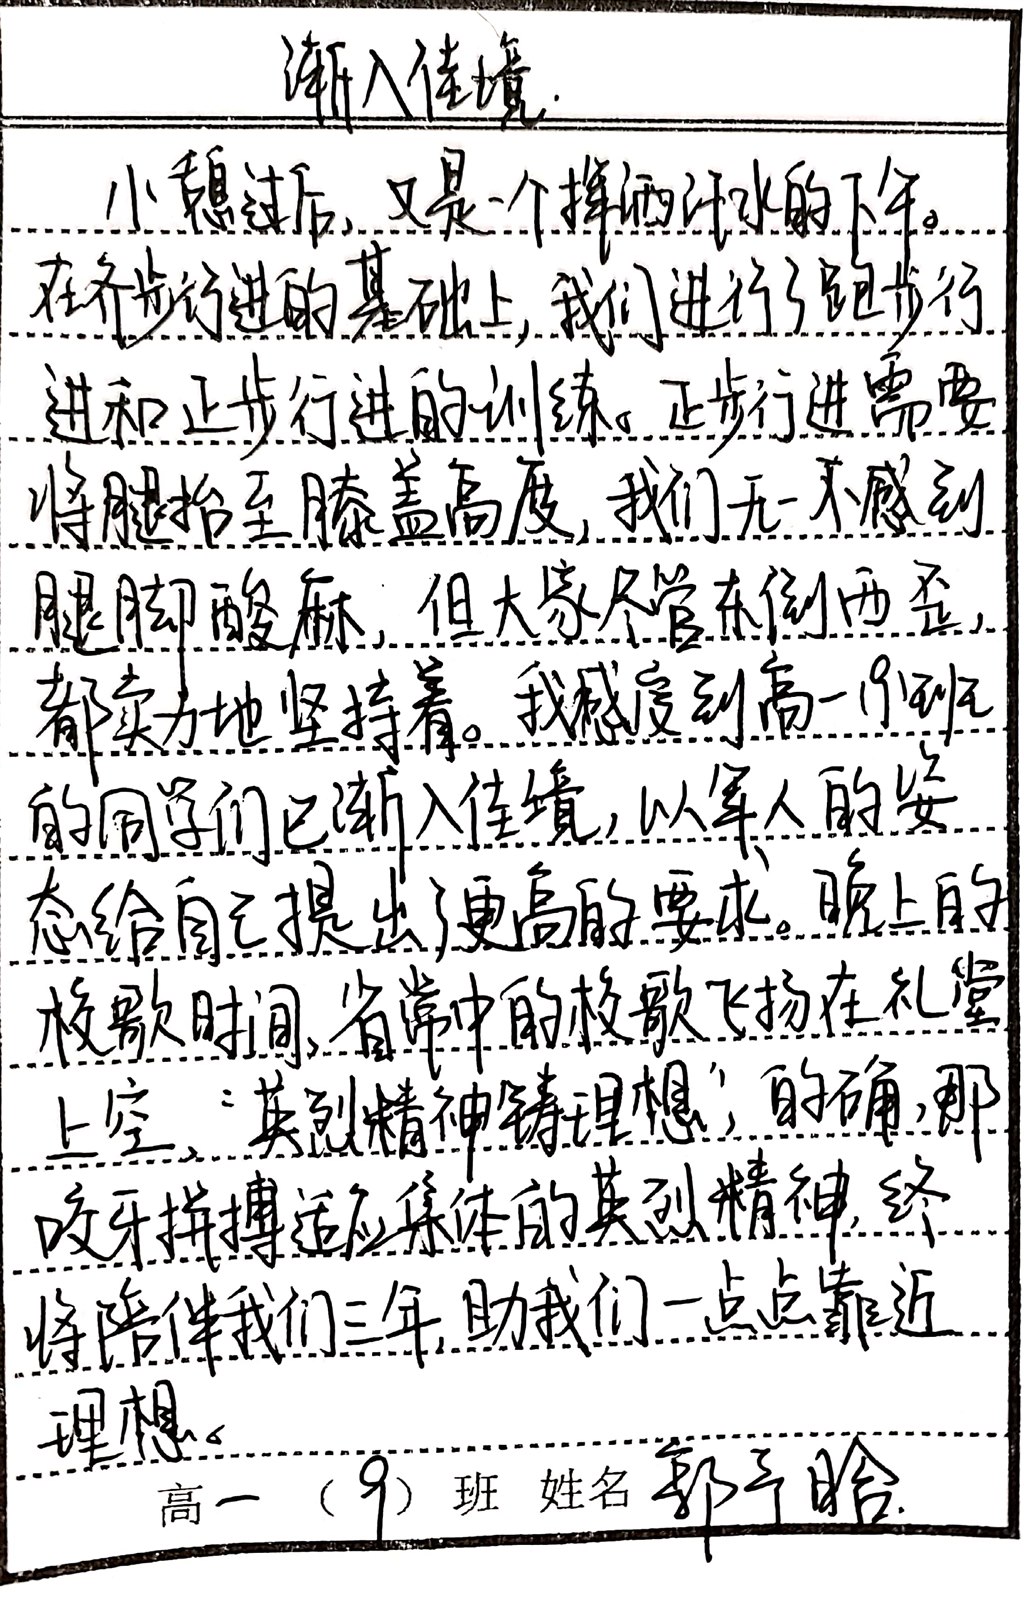 渐入佳境.
小憩过后，又是一个挥洒汗水的下午。
在齐步行进的基础上，我们进行了跑步行
进和正步行进的训练。正步行进需要
将腿抬至膝盖高度，我们无一不感到
腿脚酸麻，但大家尽管东倒西歪，
都卖力地坚持着。我感受到高一9班
的同学们已渐入佳境，以军人的姿
态给自己提出了更高的要求。晚上的
校歌时间，省常中的校歌飞扬在礼堂
上空，“英烈精神铸理想”，的确，那
咬牙拼搏适应集体的英烈精神，终
将陪伴我们三年，助我们一点点靠近
理想。
高一（9）班 姓名 郭予晗.